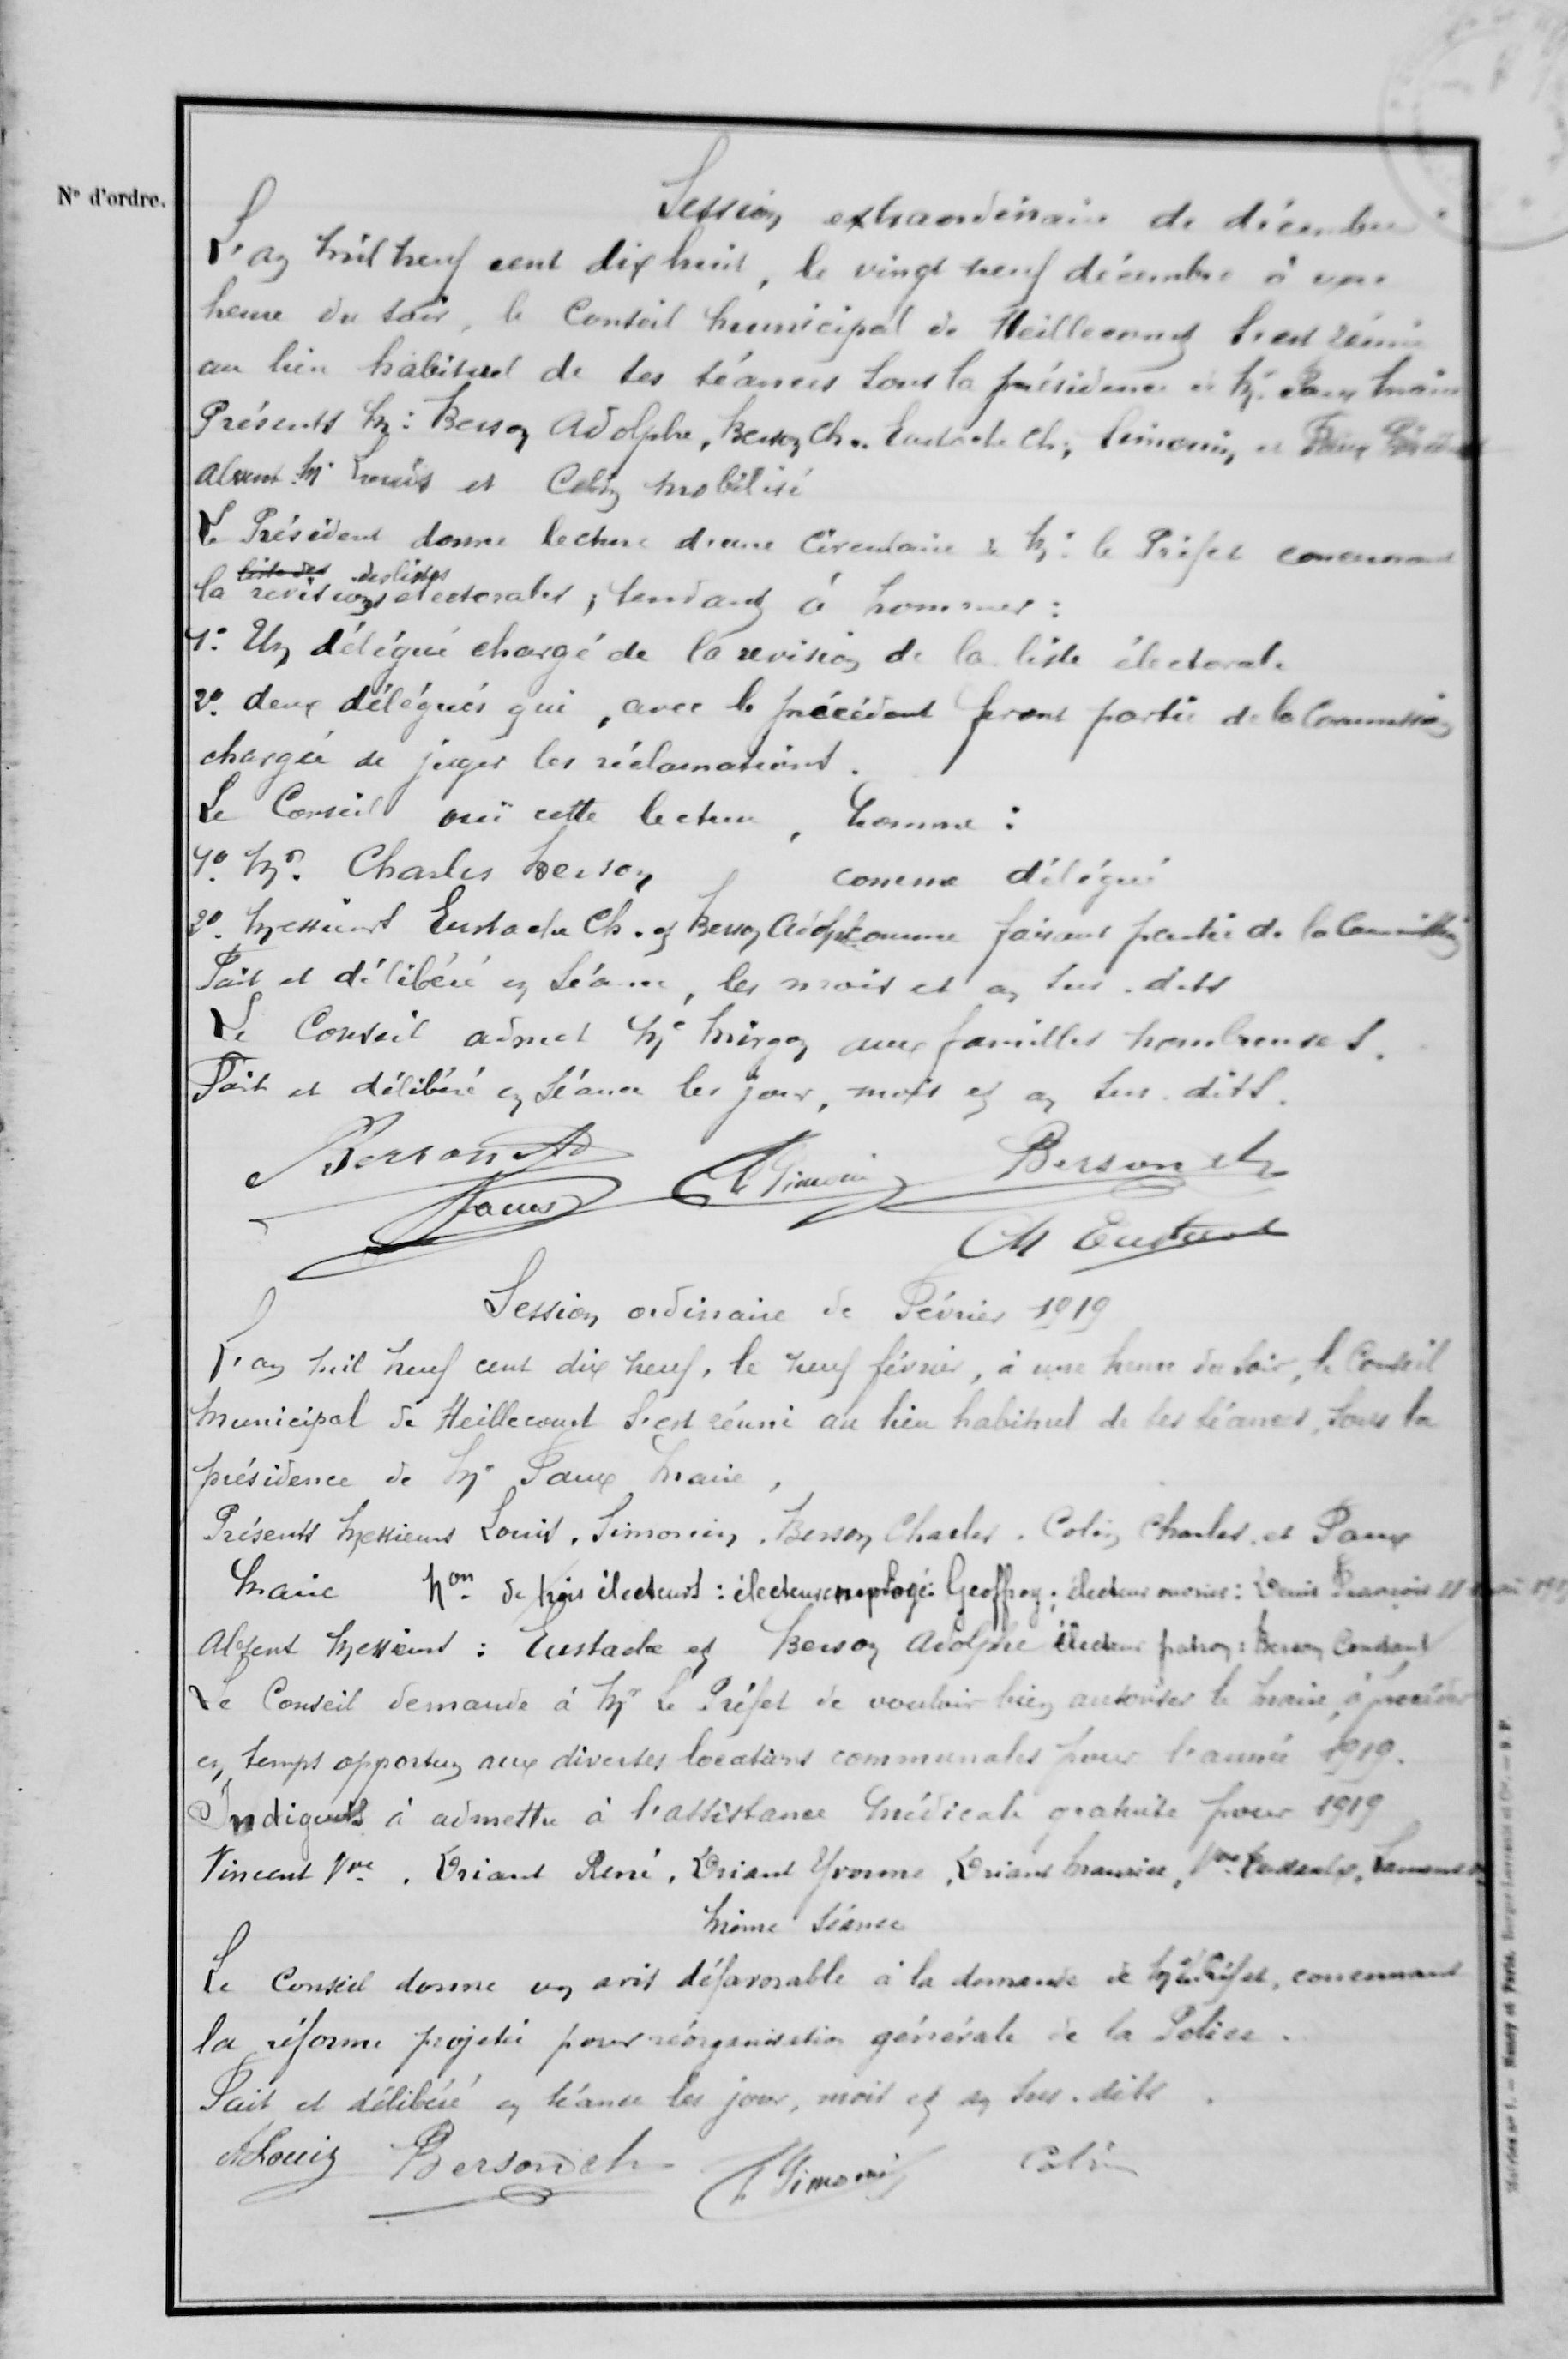 N° d'ordre.
Session extraordinaire de décembre
L'an mil neuf cent dix huit, le vingt neuf décembre à une
heure du soir, le Conseil municipal de Heillecourt s'est réuni
au lieu habituel de ses séances sous la présidence de Mr. Paux maire
Présents M: Berson Adolphe, Berson Ch. Eustache Ch, Simonin, et Paux
absent Mr Louis et Colin mobilisé
Le Président donne lecture d'une Circulaire de Mr. le Préfet concernant
liste des des listes
la revisions électorales ; tendant à nommer :
1°. Un délégué chargé de la revision de la liste électorale
2°. deux délégués qui, avec le précédent feront partie de la Commission
chargée de juger les réclamations.
Le Conseil ouï cette lecture, nomme :
1°. Mr. Charles Berson comme délégué
2°. Messieurs Eustache Ch. et Berson Adolphe comme faisant partie de la Commission
Fait et délibéré en séance, les mois et an sus-dits
Le Conseil admet Mr Mirgon aux familles nombreuses.
Fait et délibéré en séance les jour, mois et an sus-dits.
Berson Ad
Simonin
Berson ch
Paux
Ch Eustache
Session ordinaire de Février 1919
L'an mil neuf cent dix neuf, le neuf février, à une heure du soir, le Conseil
municipal de Heillecourt s'est réuni au lieu habituel de ses séances, sous la
présidence de Mr Paux maire,
Présents Messieurs Louis, Simonin, Berson Charles, Colin Charles, et Paux
maire Non de trois électeurs : électeur employé: Geoffroy ; électeur ouvrier : Denis François 11
Absent Messieurs : Eustache et Berson Adolphe électeur patron : Berson Constant
Le Conseil demande à Mr le Préfet de vouloir bien autoriser le maire, à procéder
en temps opportun aux diverses locations communales pour l'année 1919.
Indigents à admettre à l'assistance médicale gratuite pour 1919
Vincent Vve, Driant René, Driant Yvonne, Driant Maurice, Vve
même séance
Le Conseil donne un avis défavorable à la demande de Mr le Préfet, concernant
la réforme projetée pour réorganisation générale de la Police.
Fait et délibéré en séance les jour, mois et an sus-dits.
Louis Berson ch Simonin Colin